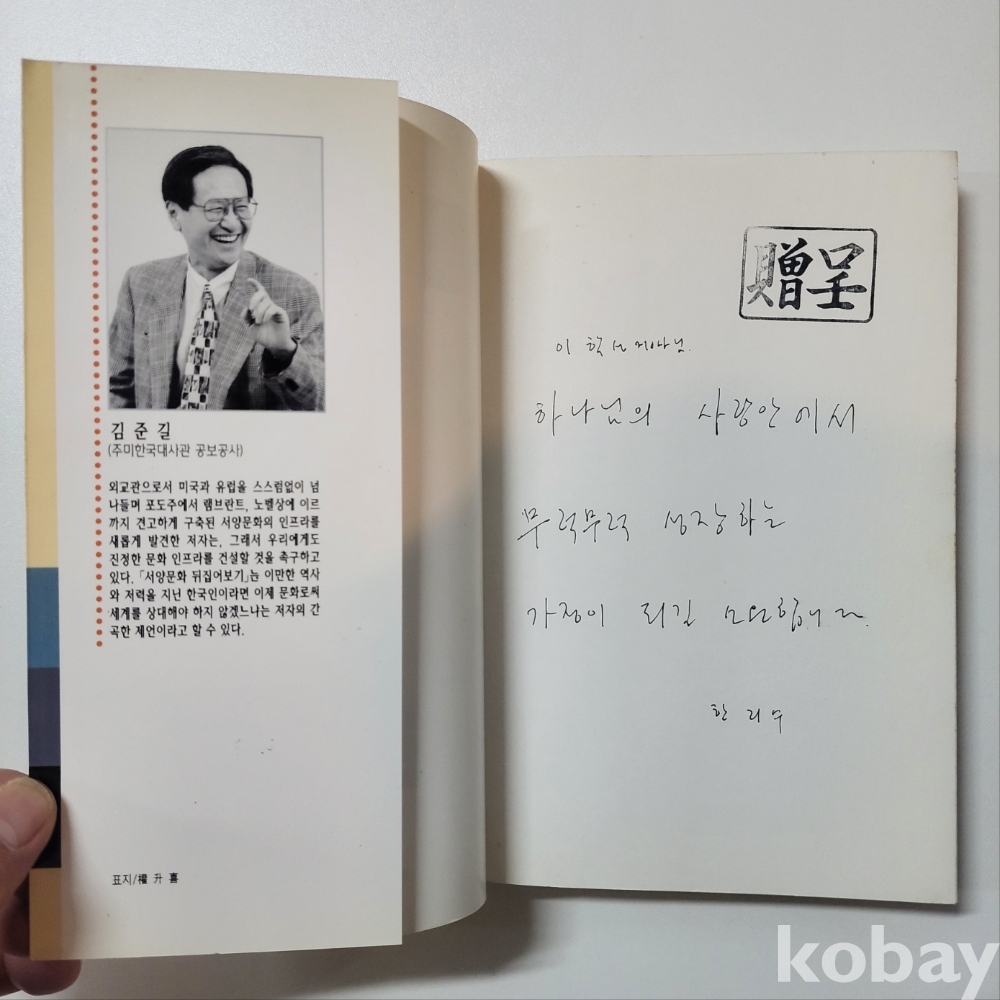 김준길
(주미한국대사관 공보공사)
외교관으로서 미국과 유럽을 스스럼없이 넘
나들며 포도주에서 램브란트, 노벨상에 이르
까지 견고하게 구축된 서양문화의 인프라를
새롭게 발견한 저자는, 그래서 우리에게도
진정한 문화 인프라를 건설할 것을 촉구하고
있다. 「서양문화 뒤집어보기」는 이만한 역사
와 저력을 지닌 한국인이라면 이제 문화로써
세계를 상대해야 하지 않겠느냐는 저자의 간
곡한 제언이라고 할 수 있다.
표지/權 升 喜
贈呈
이 학선
하나님의 사랑안에서
무럭무럭 성장하는
가정이 되길 소망합니다.
한 리수
kobay